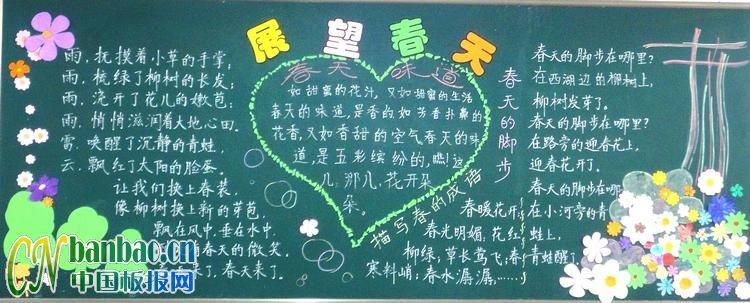 展望春天
雨，抚摸着小草的手掌；
雨，梳绿了柳树的长发；
雨，浇开了花儿的嫩苞；
雨，悄悄滋润着大地心田。
雷，唤醒了沉静的青蛙，
云，飘红了太阳的脸蛋。
让我们换上春装，
像柳树换上新的芽苞，
飘在风中，垂在水中
春天的微笑，
来了，春天来了。
春天味道
如甜蜜的花汁，又如甜蜜的生活
春天的味道，是香的，如芳香扑鼻的
花香，又如香甜的空气春天的味
道，是五彩缤纷的，瞧！这
儿，那儿，花开朵
朵。
描写春的成语
春暖花开，
春光明媚，花红
柳绿，草长莺飞，春
寒料峭，春水潺潺，……
春天的脚步
春天的脚步在哪里？
在西湖边的柳树上，
柳树发芽了。
春天的脚步在哪里？
在路旁的迎春花上，
迎春花开了。
春天的脚步在哪
在小河旁的青
蛙上，
青蛙醒了
CNbanbao.cn
中国板报网